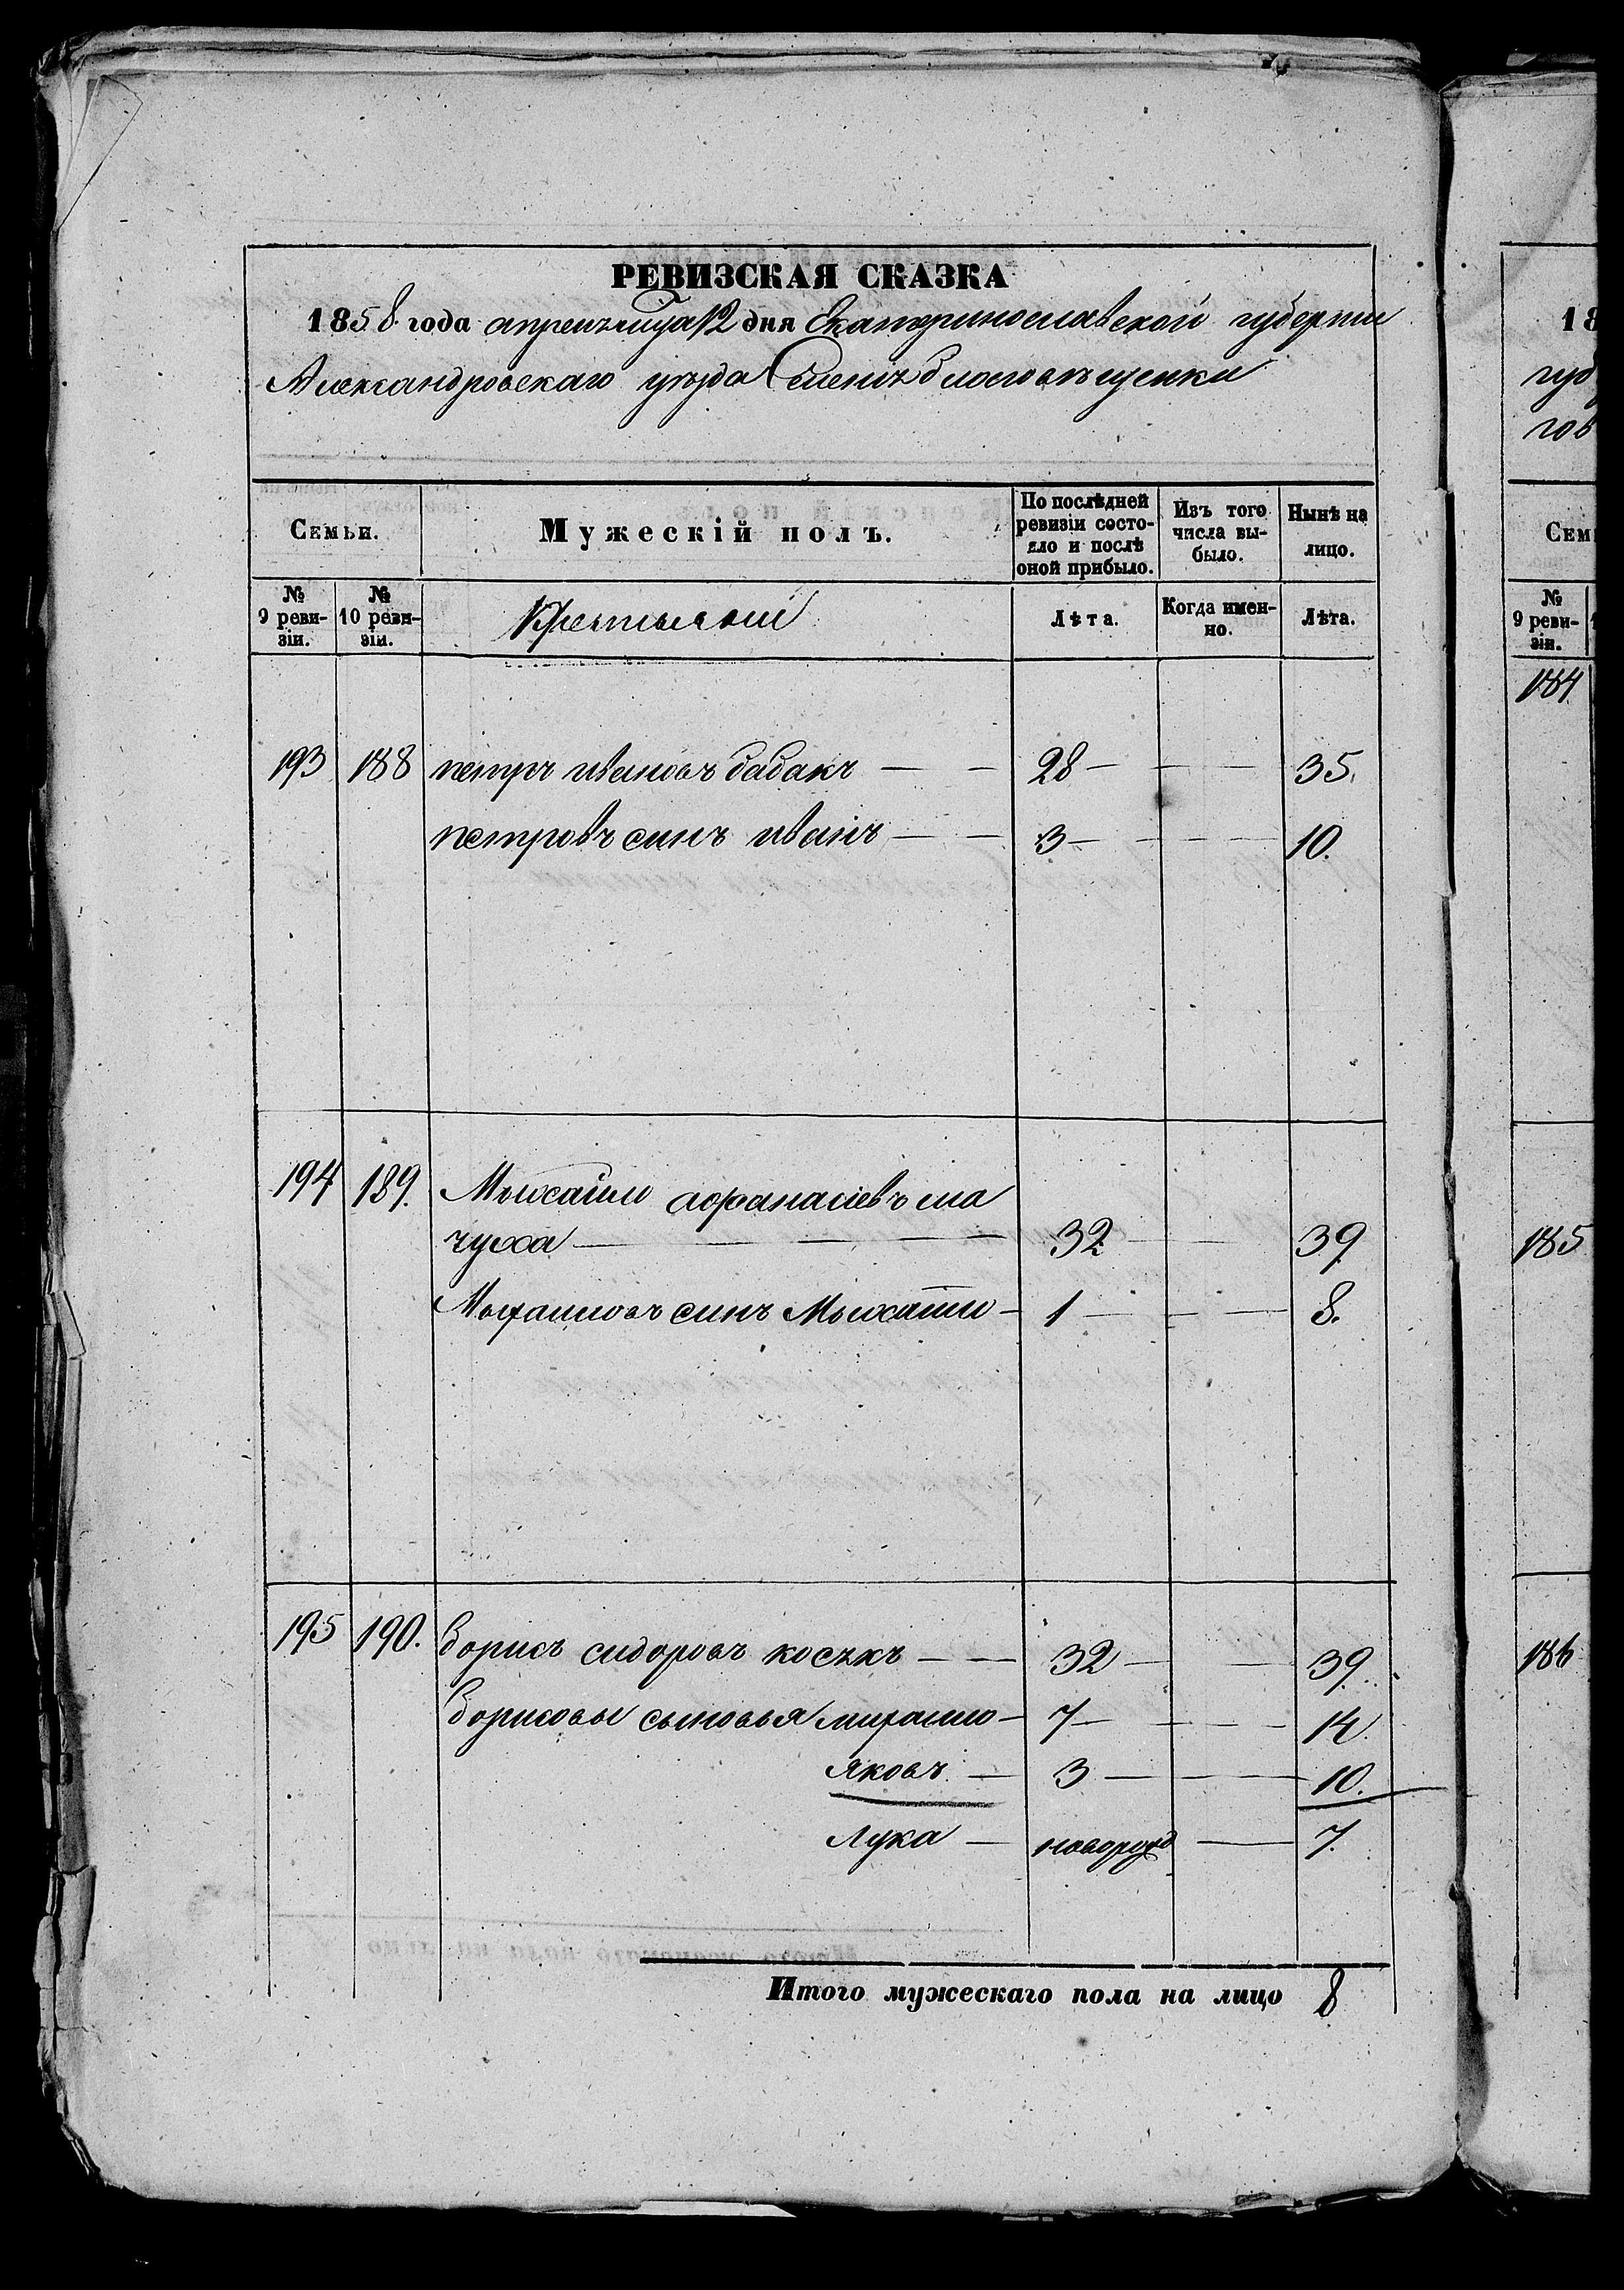 РЕВИЗСКАЯ СКАЗКА
1858 года апреля мца 12 дня Екатеринославской губернии
Александровскаго уезда благовещенки
Семьи.
Мужескій полъ.
По послѣдней ревизіи состояло и послѣ оной прибыло.
Изъ того числа выбыло.
Нынѣ на лицо.
№ 9 ревизіи.
№ 10 ревизіи.
Лѣта.
Когда именно.
Лѣта.
193 188 петръ ивановъ бабакъ — — 28 — — — 35.
петровъ синъ иванъ — — 3 — — — 10.
194 189. Мыхайло афанасіевъ ма
чуха — — — — 32 — — 39
Мыхаиловъ синъ Мыхайло — 1 — — — 8.
195 190. Борисъ сидоровъ — — 32 — — 39.
Борисовы сыновья михаило — 7 — — — 14.
Яковъ. — 3 — — — 10.
Лука — новорожд — 7.
Итого мужескаго пола на лицо 8
18
губ
гов
Сем
№ 9 ревизіи.
184
185
186